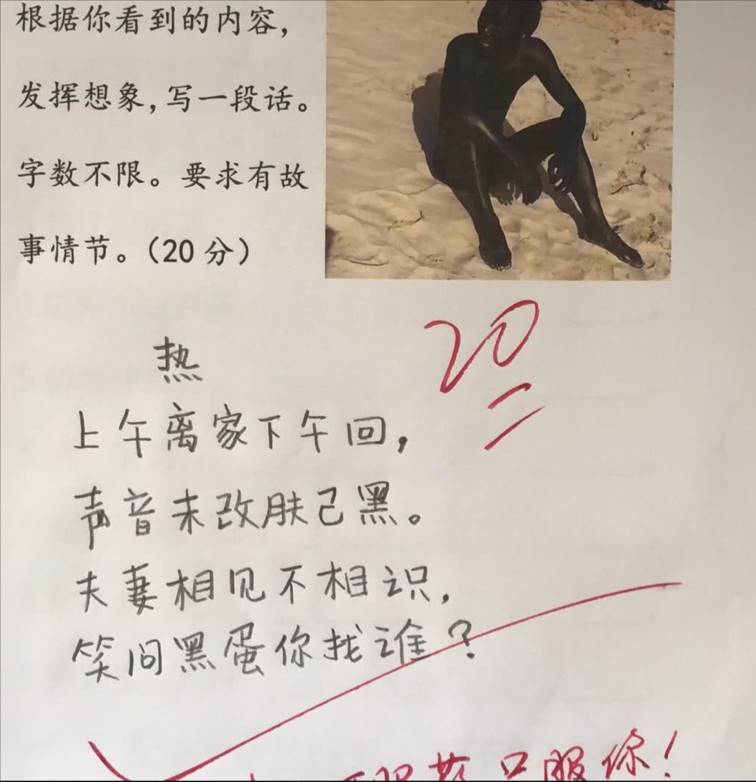 根据你看到的内容，
发挥想象，写一段话。
字数不限。要求有故
事情节。（20 分）
20
热
上午离家下午回，
声音未改肤已黑。
夫妻相见不相识，
笑问黑蛋你找谁？
只服你！